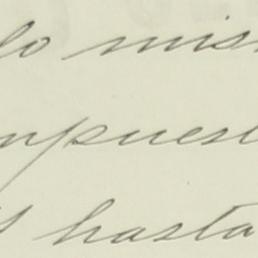 lo mis
mpuest
hasta